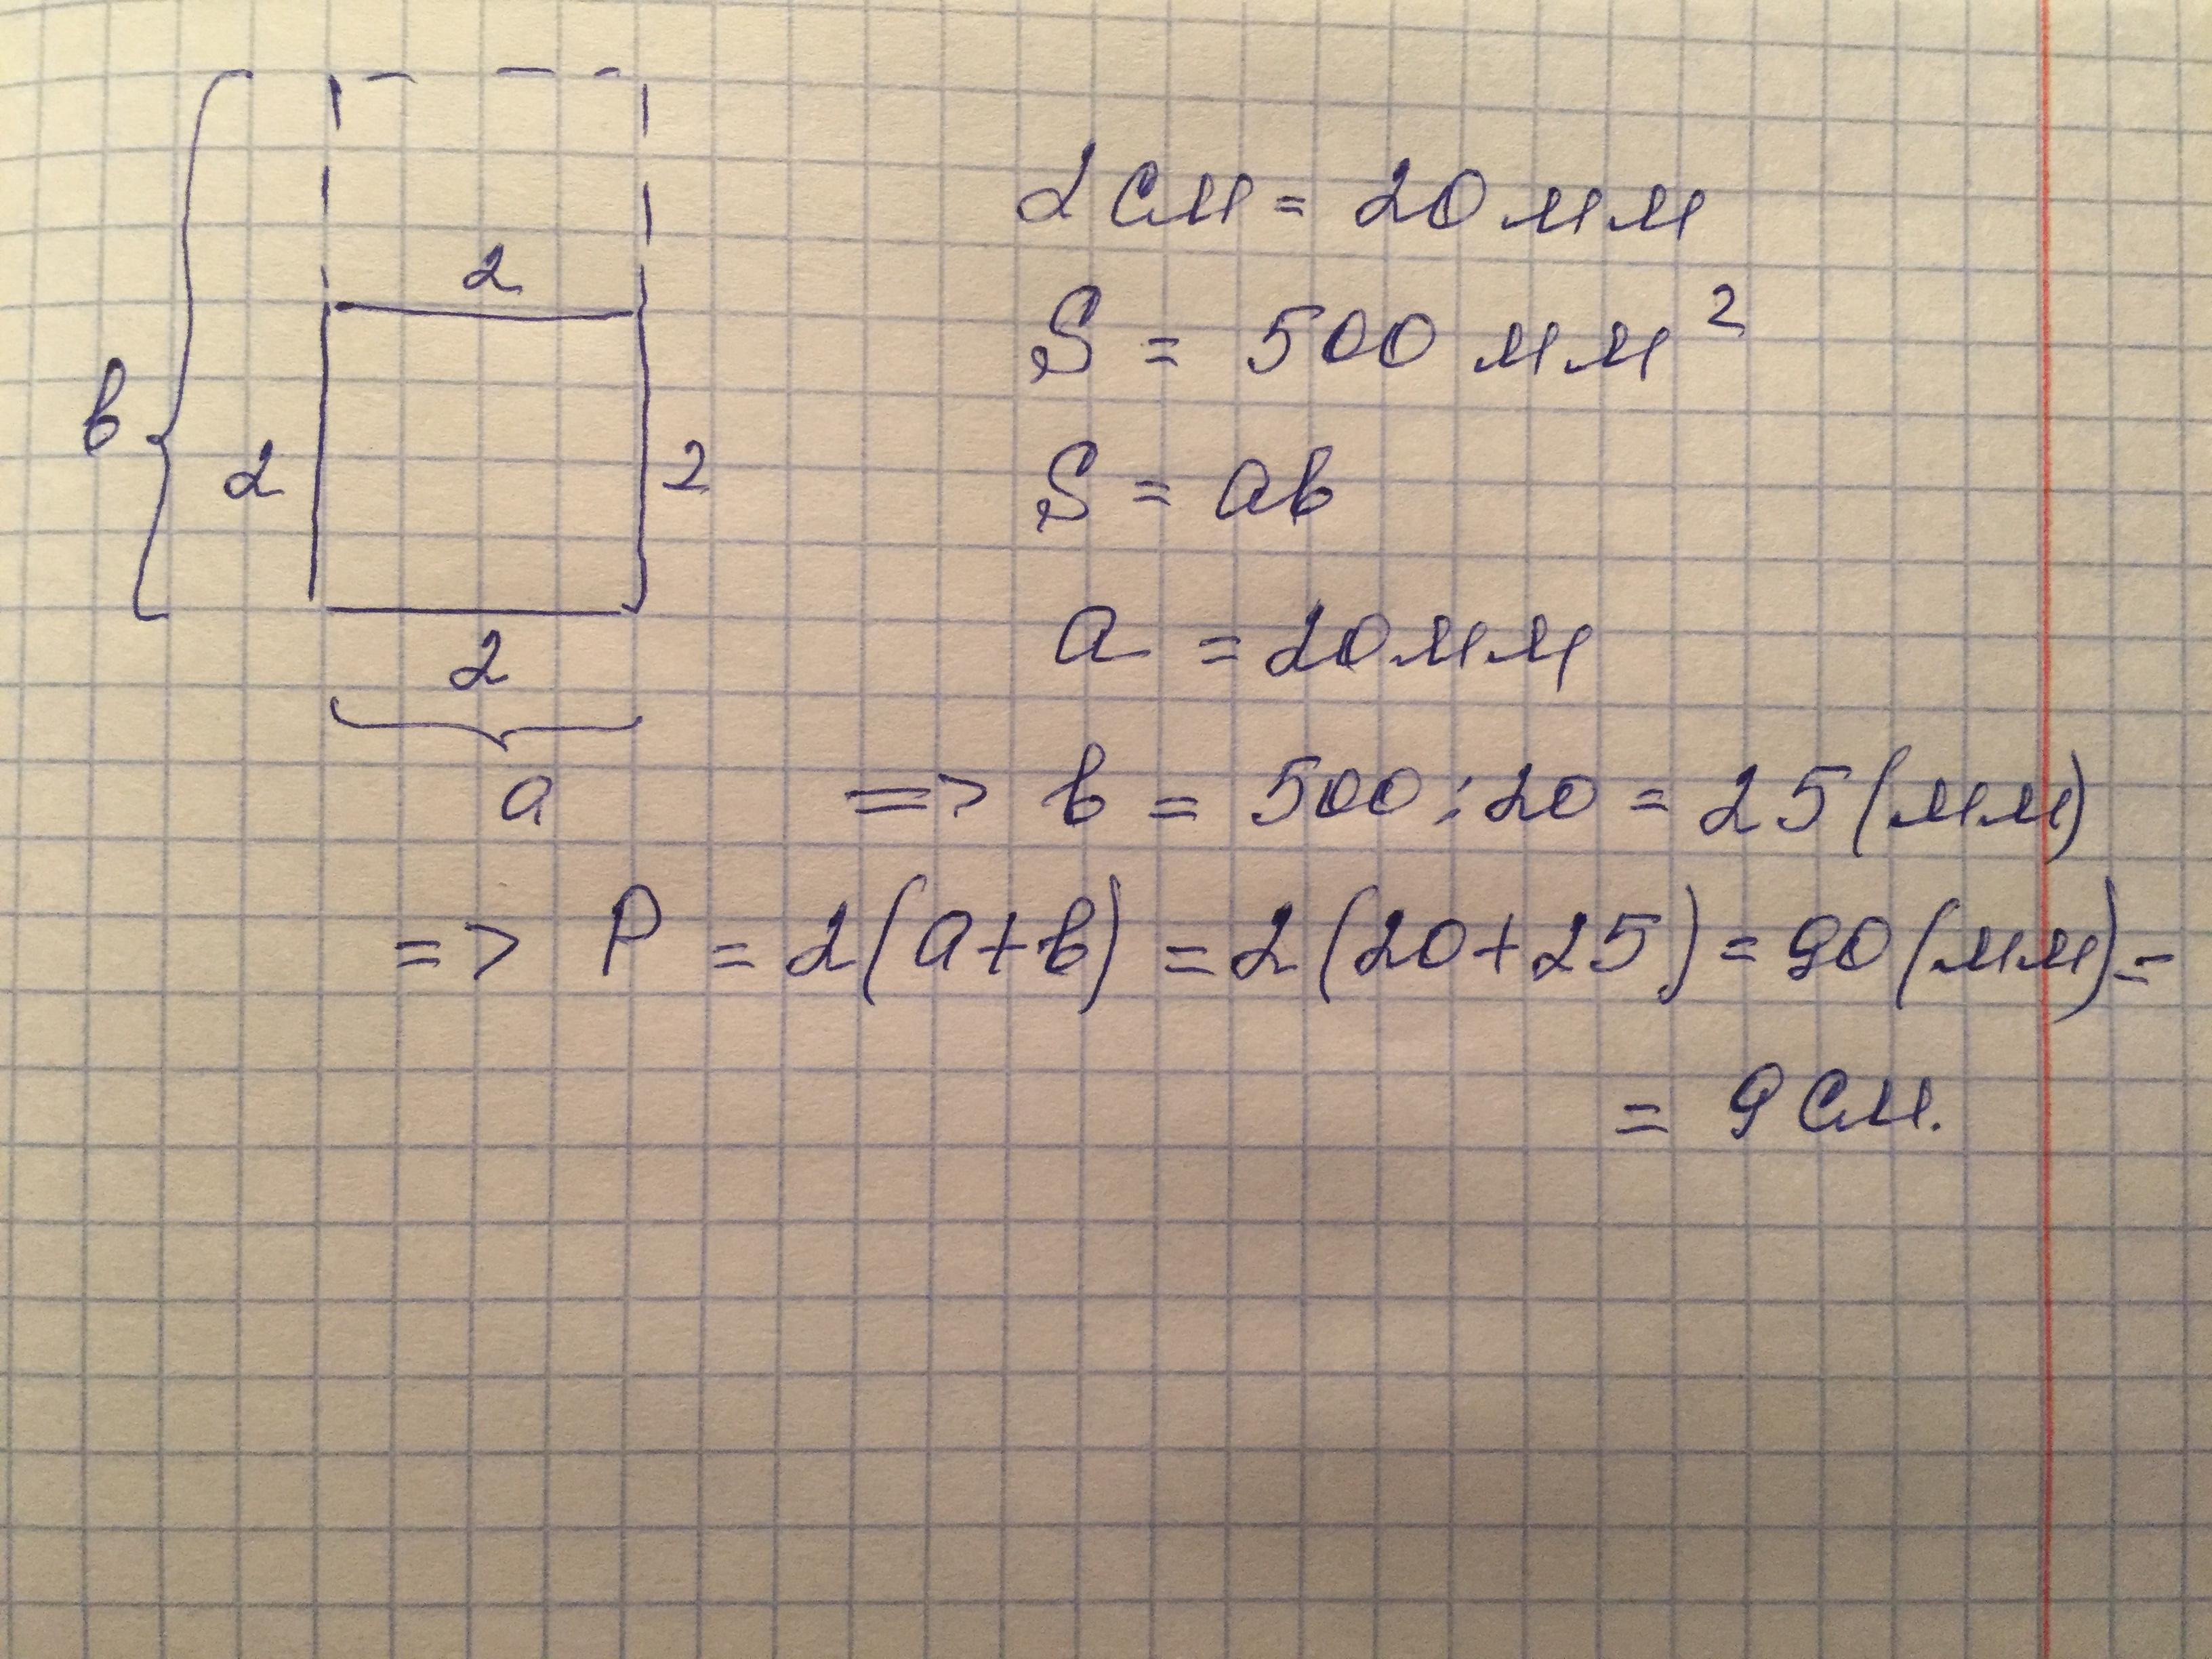 2
в
2
2
2
a
2 см = 20 мм
S = 500 мм²
S = ab
a = 20 мм
=> b = 500 : 20 = 25 (мм)
=> P = 2(a+b) = 2(20+25) = 90 (мм) =
= 9 см.